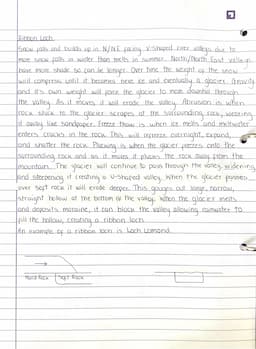 Ribbon Loch
Snow falls and builds up in N/N.E facing V-shaped river valleys due to
more snow falls in winter than melts in summer. North/North East valleys
have more shade so can be longer. Over time the weight of the snow
will compress until it becomes neve ice and eventually a glacier. Gravity
and it's own weight will force the glacier to move downhill through
the valley. As it moves it will erode the valley. Abrasion is when
rock stuck to the glacier scrapes at the surrounding rock, wearing
it away like sandpaper. Freeze thaw is when ice melts and meltwater
enters cracks in the rock. This will refreeze overnight, expand,
and shatter the rock. Plucking is when the glacier freezes onto the
surrounding rock and as it moves it plucks the rock away from the
mountain. The glacier will continue to pass through the valley, widening
and steepening it creating a U-shaped valley. When the glacier passes
over soft rock it will erode deeper. This gouges out large, narrow,
straight hollow at the bottom of the valley. When the glacier melts
and deposits moraine, it can block the valley allowing rainwater to
fill the hollow, creating a ribbon loch.
An example of a ribbon loch is Loch Lomond.
Hard Rock Soft Rock